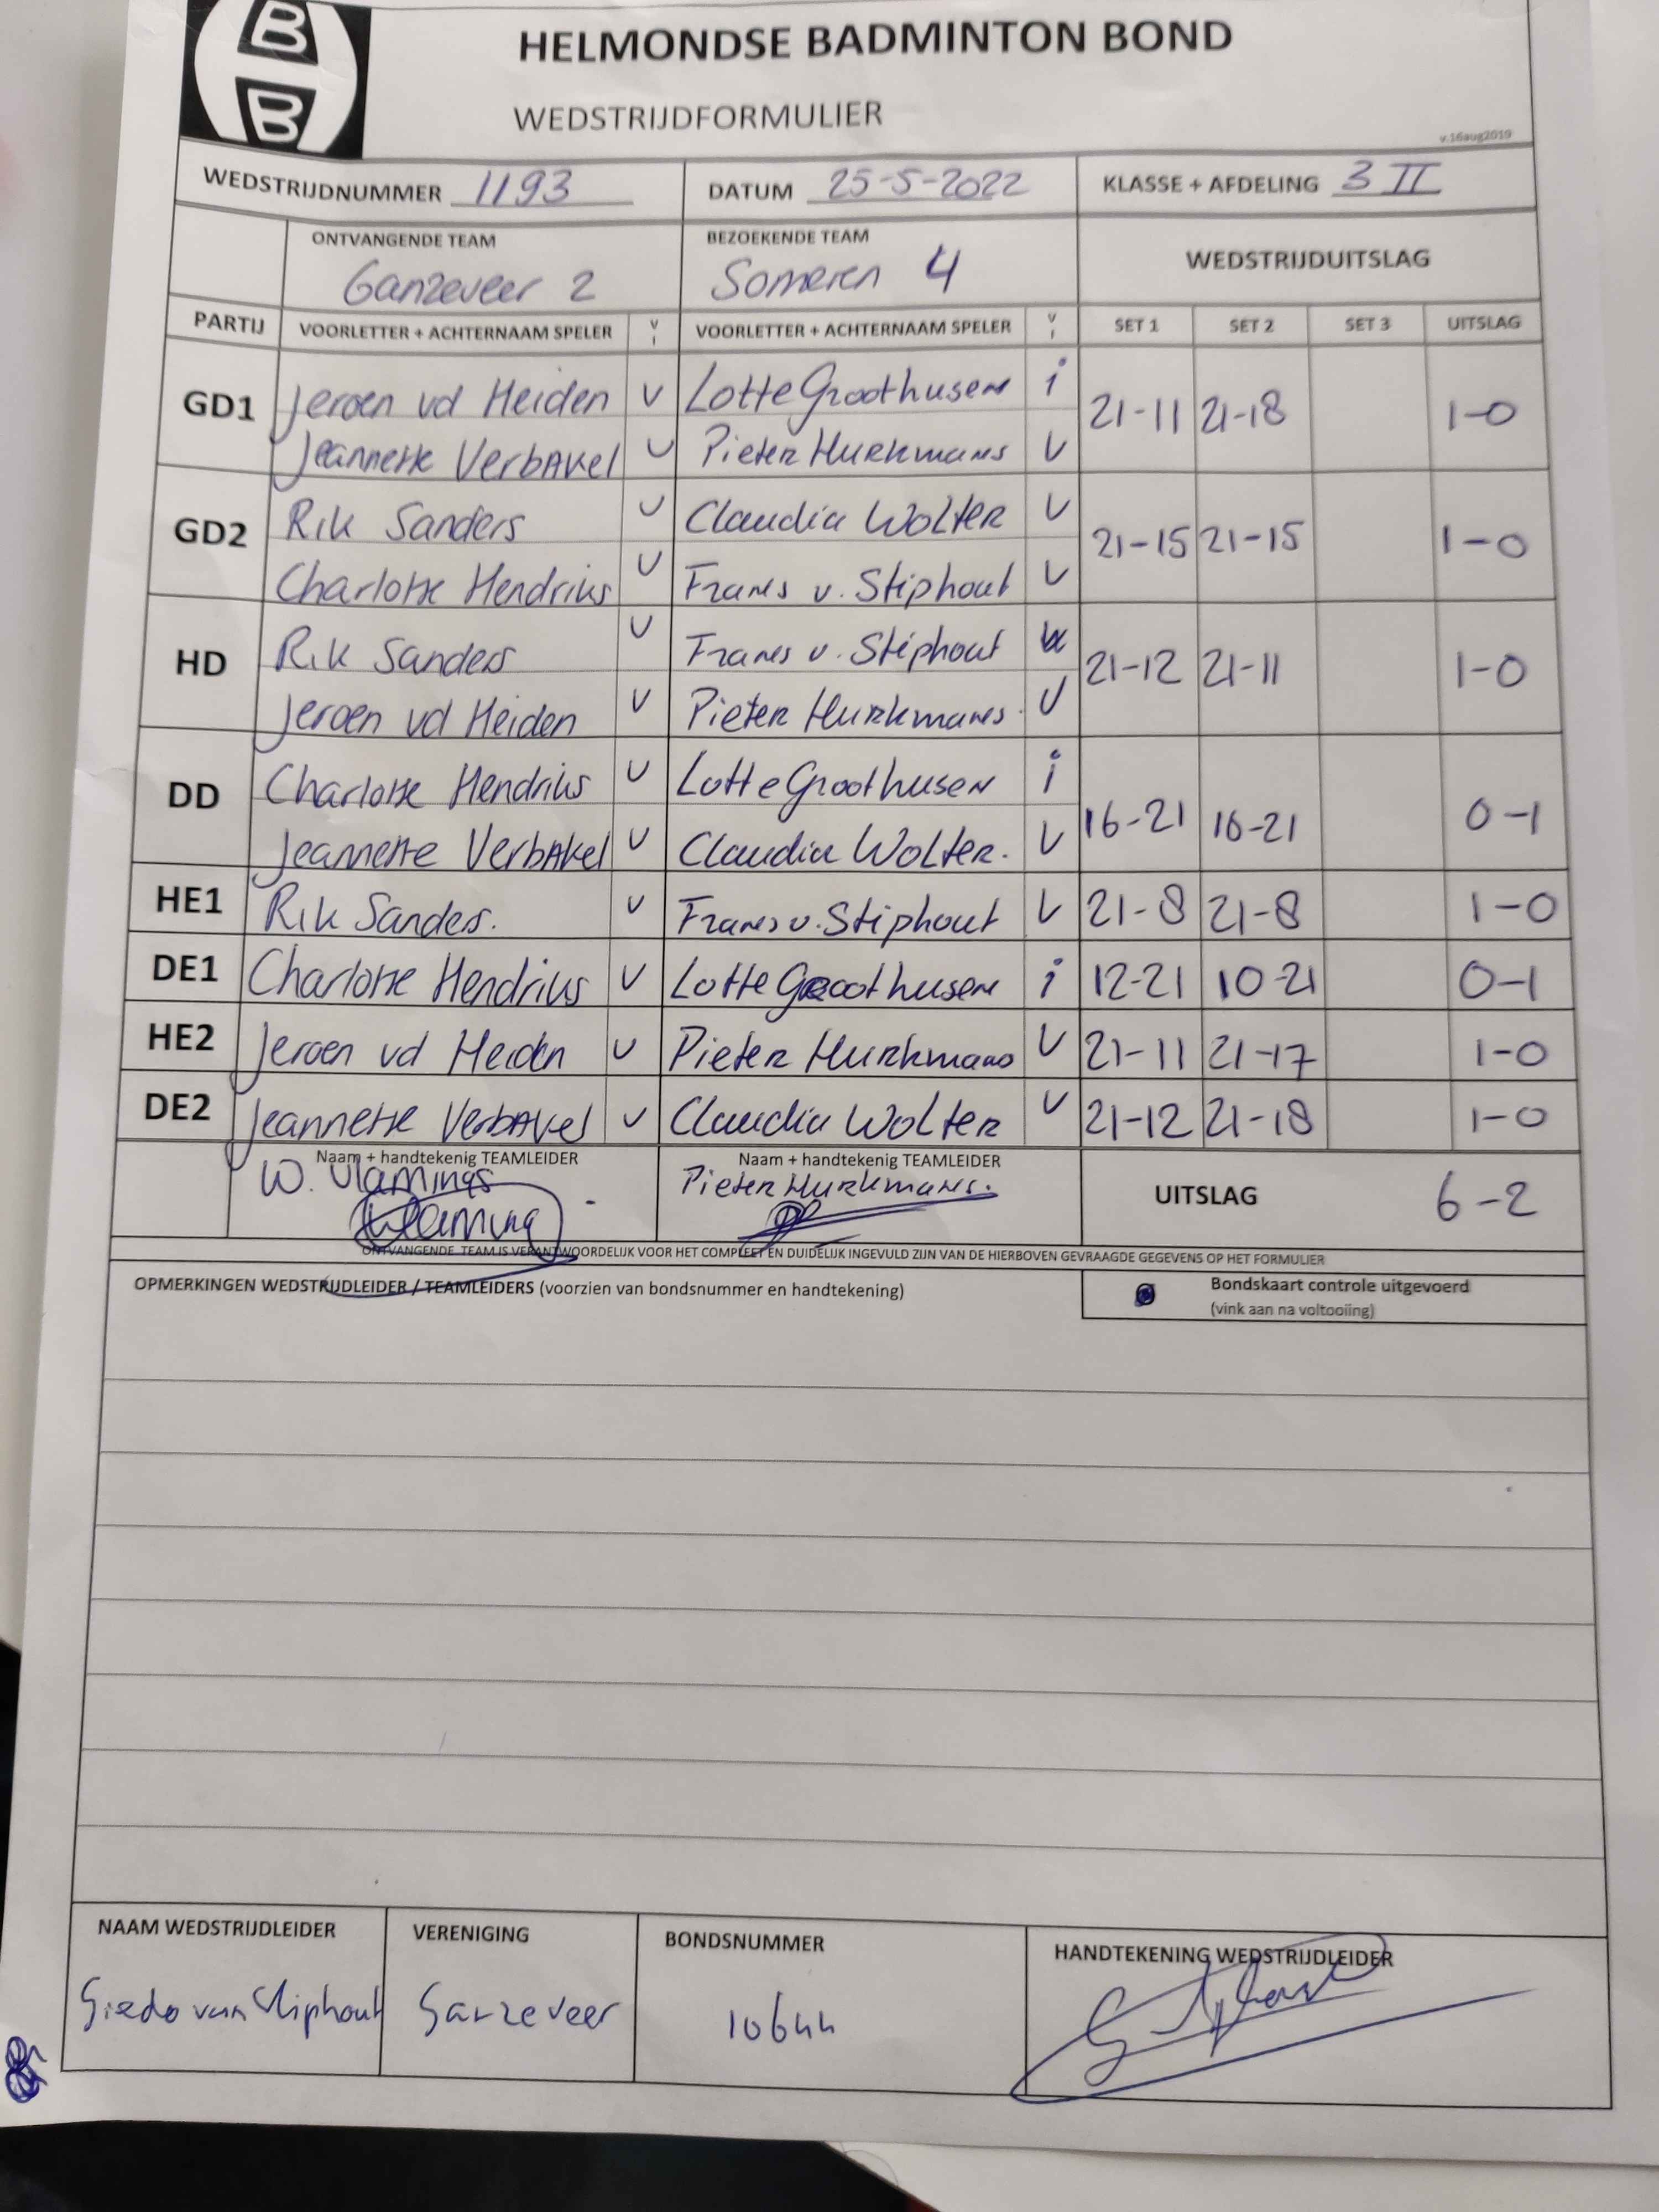 B
B
HELMONDSE BADMINTON BOND
WEDSTRIJDFORMULIER
v.16aug2019
WEDSTRIJDNUMMER 1193 DATUM 25-5-2022 KLASSE + AFDELING 3 II
ONTVANGENDE TEAM BEZOEKENDE TEAM WEDSTRIJDUITSLAG
Ganzeveer 2 Someren 4
PARTIJ VOORLETTER + ACHTERNAAM SPELER V I VOORLETTER + ACHTERNAAM SPELER V I SET 1 SET 2 SET 3 UITSLAG
GD1 Jeroen vd Heiden v Lotte Groothusen i 21-11 21-18 1-0
Jeannette Verbakel v Pieter Hurkmans v
GD2 Rik Sanders v Claudia Wolter v 21-15 21-15 1-0
Charlotte Hendriks v Frans v. Stiphout v
HD Rik Sanders v Frans v. Stiphout v 21-12 21-11 1-0
Jeroen vd Heiden v Pieter Hurkmans. v
DD Charlotte Hendriks v Lotte Groothusen i 16-21 16-21 0-1
Jeannette Verbakel v Claudia Wolter. v
HE1 Rik Sanders. v Frans v. Stiphout v 21-8 21-8 1-0
DE1 Charlotte Hendriks v Lotte Groothusen i 12-21 10-21 0-1
HE2 Jeroen vd Heiden v Pieter Hurkmans v 21-11 21-17 1-0
DE2 Jeannette Verbakel v Claudia Wolter v 21-12 21-18 1-0
Naam + handtekenig TEAMLEIDER Naam + handtekenig TEAMLEIDER
W. Vlamings Pieter Hurkmans. UITSLAG 6-2
ONTVANGENDE TEAM IS VERANTWOORDELIJK VOOR HET COMPLEET EN DUIDELIJK INGEVULD ZIJN VAN DE HIERBOVEN GEVRAAGDE GEGEVENS OP HET FORMULIER
OPMERKINGEN WEDSTRIJDLEIDER / TEAMLEIDERS (voorzien van bondsnummer en handtekening) Bondskaart controle uitgevoerd
(vink aan na voltooiing)
NAAM WEDSTRIJDLEIDER VERENIGING BONDSNUMMER HANDTEKENING WEDSTRIJDLEIDER
Giedo van Stiphout Ganzeveer 10644